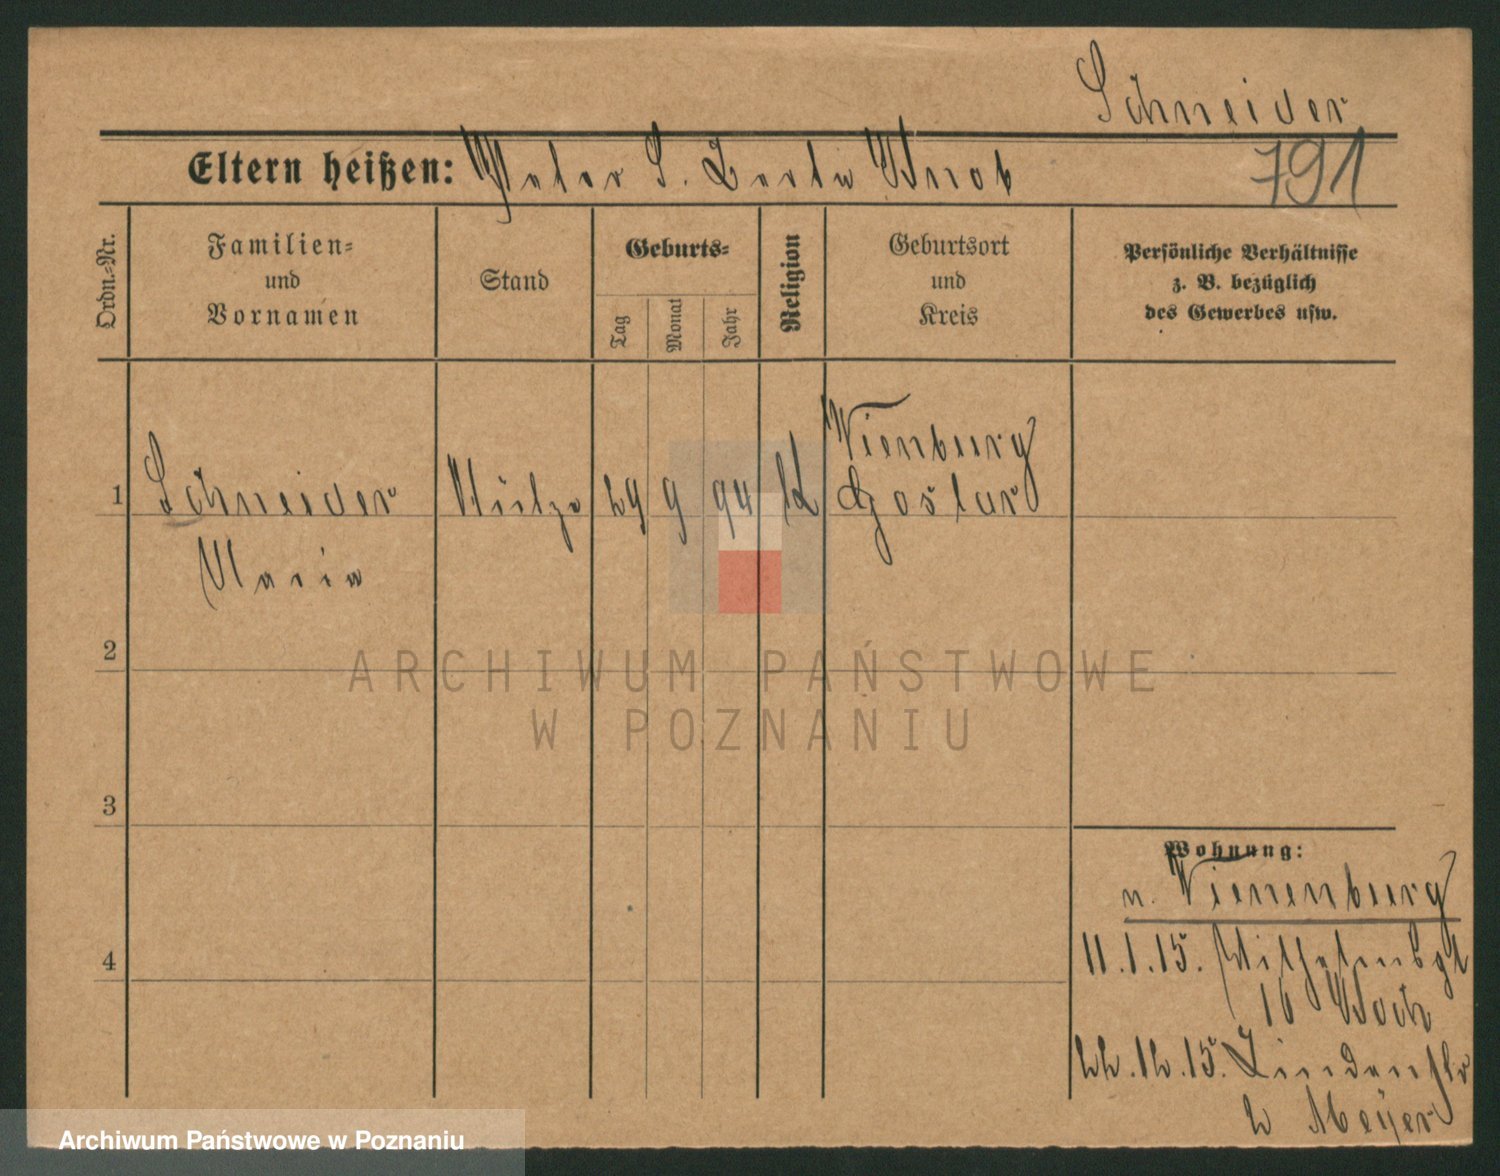 Schneider
Eltern heißen: Peter S. Berta Knob
791
Ordn.-Nr.
Familien-
und
Vornamen
Stand
Geburts-
Tag
Monat
Jahr
Religion
Geburtsort
und
Kreis
Persönliche Verhältnisse
z. B. bezüglich
des Gewerbes usw.
1 Schneider Stütze 29 9 94 Vienburg
Goslar
Maria
2
3
4
Wohnung:
n. Vienenburg
11.1.15. Wilhelmspl
16
22.12.15. Lindenstr
2 Meyer
ARCHIWUM PAŃSTWOWE
W POZNANIU
Archiwum Państwowe w Poznaniu